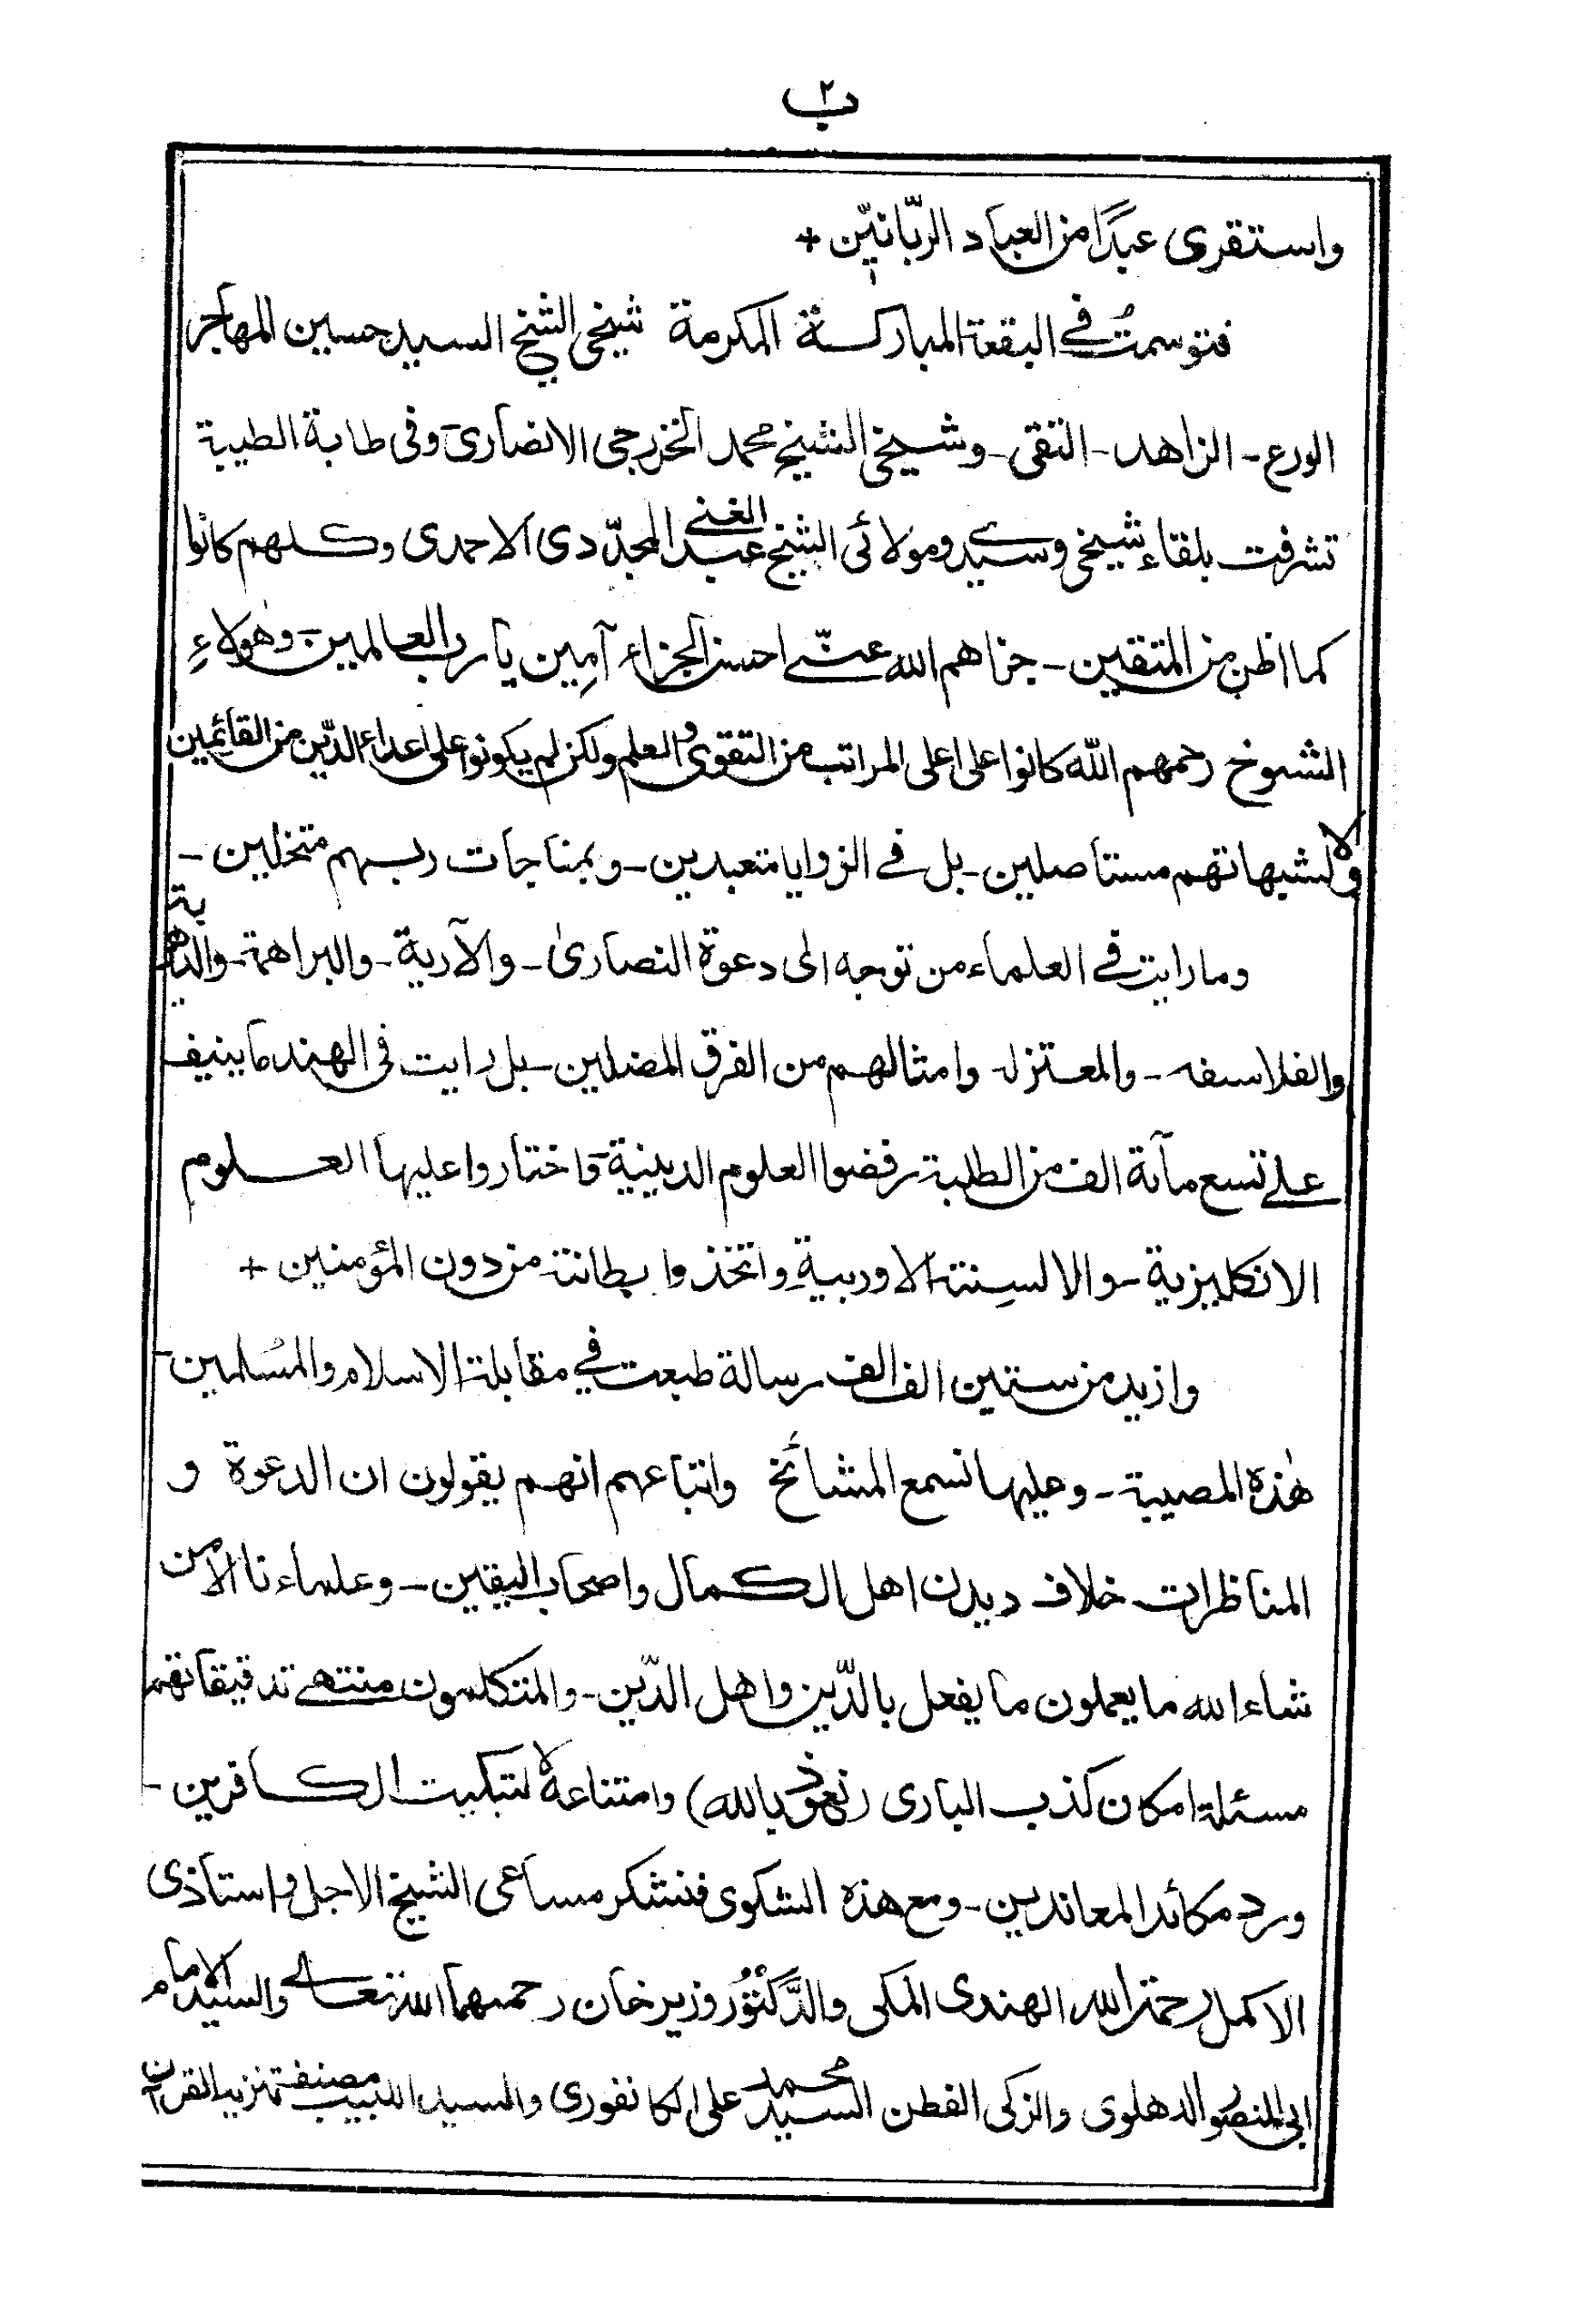 ب ٢
واستقرى عبدًا من العباد الربّانيّن +
فتوسمتُ في البقعة المباركة المكرمة شيخي الشيخ السيد حسين المهاجر
الورع - الزاهد - التقى - وشيخي الشيخ محمد الخزرجى الانصارى وفى طابة الطيبة
تشرفت بلقاء شيخى وسيدى ومولائى الشيخ عبد الغنى المجدّدى الاحمدى وكلهم كانوا
كما اظن من المتقين - جزاهم الله عنّى احسن الجزاء آمِين يا رب العالمين - وهٰولاءِ
الشيوخ رحمهم اللّٰه كانوا على اعلى المراتب من التقوى والعلم ولكن لم يكونوا على اعداء الدّين من القائمين
ولا لشبهاتهم مستاصلين - بل في الزوايا متعبدين - وبمناجات ربهم متخلين -
وما رايت في العلماء من توجه الى دعوة النصارىٰ - والآرية - والبراهمة - والدهرية
والفلاسفه - والمعتزله وامثالهم من الفرق المضلين - بل رايت فى الهند ما ينيف
على تسع مآئة الف من الطلبة رفضوا العلوم الدينية واختاروا عليها العلوم
الانكليزية - والالسِنة الاوربيةِ واتخذوا بطانة من دون المؤمنين +
وازيد من ستين الف الف رسالة طبعت في مقابلة الاسلام والمسُلمين -
هٰذه المصيبة - وعليها نسمع المشائخ واتباعهم انهم يقولون ان الدعوة و
المناظرات خلاف ديدن اهل الكمال واصحاب اليقين - وعلماءنا الا من
شاء الله ما يعملون ما يفعل بالدّين واهل الدّين - والمتكلمون منتهى تدقيقاتهم
مسئلة امكان كذب البارى (نعوذ بالله) وامتناعهٖ لا لتبكيت الكافرين -
ورد مكائد المعاندين - ومع هذه الشكوى فنشكر مساعى الشيخ الاجل واستاذى
الاكمل رحمة الله الهندى المكى والدَّكْتُوُر وزير خان رحمهما اللّٰه تعالى والسيد الامام
ابى المنصُور الدهلوى والزكى الفطن السيد محمد على الكانفورى والسيد اللبيب مصنف تنزيه القرآن